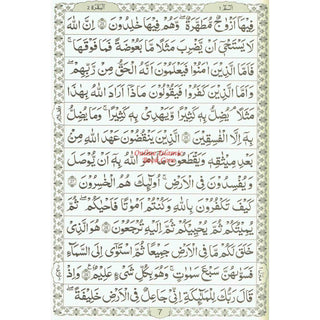 البقرة ٢
الٓمّٓ ١
فِيهَآ أَزْوَاجٌ مُّطَهَّرَةٌ ۖ وَهُمْ فِيهَا خَٰلِدُونَ ۝ إِنَّ اللَّهَ
لَا يَسْتَحْىِۦٓ أَن يَضْرِبَ مَثَلًا مَّا بَعُوضَةً فَمَا فَوْقَهَا ۚ
فَأَمَّا الَّذِينَ اٰمَنُوا فَيَعْلَمُونَ أَنَّهُ الْحَقُّ مِن رَّبِّهِمْ ۖ
وَأَمَّا الَّذِينَ كَفَرُوا فَيَقُولُونَ مَاذَآ أَرَادَ اللَّهُ بِهَٰذَا
مَثَلًا ۘ يُضِلُّ بِهِۦ كَثِيرًا وَيَهْدِى بِهِۦ كَثِيرًا ۚ وَمَا يُضِلُّ
بِهِۦٓ إِلَّا الْفَٰسِقِينَ ۝ الَّذِينَ يَنقُضُونَ عَهْدَ اللَّهِ مِن
بَعْدِ مِيثَٰقِهِۦ وَيَقْطَعُونَ مَآ أَمَرَ اللَّهُ بِهِۦٓ أَن يُوصَلَ
وَيُفْسِدُونَ فِى الْأَرْضِ ۚ أُولَٰٓئِكَ هُمُ الْخَٰسِرُونَ ۝
كَيْفَ تَكْفُرُونَ بِاللَّهِ وَكُنتُمْ أَمْوَاتًا فَأَحْيَاكُمْ ۖ ثُمَّ
يُمِيتُكُمْ ثُمَّ يُحْيِيكُمْ ثُمَّ إِلَيْهِ تُرْجَعُونَ ۝ هُوَ الَّذِى
خَلَقَ لَكُم مَّا فِى الْأَرْضِ جَمِيعًا ثُمَّ اسْتَوَىٰٓ إِلَى السَّمَآءِ
فَسَوَّىٰهُنَّ سَبْعَ سَمَٰوَٰتٍ ۚ وَهُوَ بِكُلِّ شَىْءٍ عَلِيمٌ ۝ وَإِذْ
قَالَ رَبُّكَ لِلْمَلَٰٓئِكَةِ إِنِّى جَاعِلٌ فِى الْأَرْضِ خَلِيفَةً ۖ
7